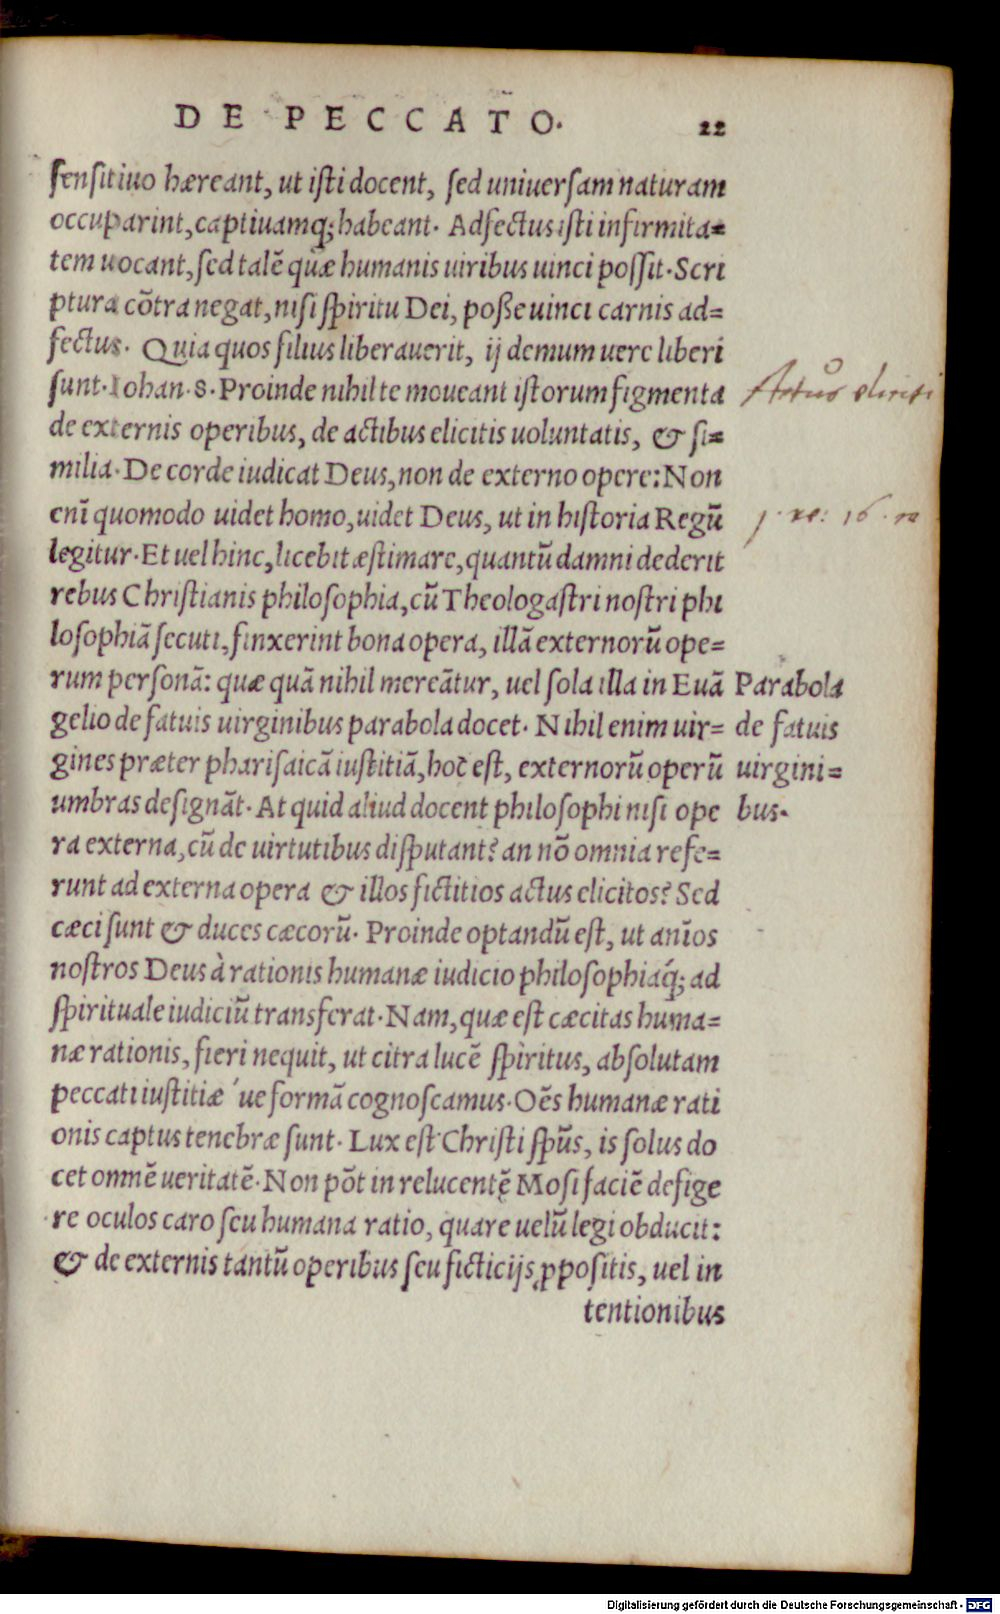 DE PECCATO. 22
sensitiuo hæreant, ut isti docent, sed uniuersam naturam
occuparint, captiuamq; habeant. Adfectus isti infirmita=
tem uocant, sed talē quæ humanis uiribus uinci possit. Scri
ptura cōtra negat, nisi spiritu Dei, posse uinci carnis ad=
fectus. Quia quos filius liberauerit, ij demum uere liberi
sunt. Iohan. 8. Proinde nihil te moueant istorum figmenta
Actus eliciti
de externis operibus, de actibus elicitis uoluntatis, & si=
milia. De corde iudicat Deus, non de externo opere: Non
enī quomodo uidet homo, uidet Deus, ut in historia Regū
16.
legitur. Et uel hinc, licebit æstimare, quantū damni dederit
rebus Christianis philosophia, cū Theologastri nostri phi
losophiā secuti, finxerint bona opera, illā externorū ope=
rum personā: quæ quā nihil mereātur, uel sola illa in Euā
gelio de fatuis uirginibus parabola docet. Nihil enim uir=
gines præter pharisaicā iustitiā, hoc est, externorū operū
umbras designāt. At quid aliud docent philosophi nisi ope
Parabola
de fatuis
uirgini=
bus.
ra externa, cū de uirtutibus disputant? an nō omnia refe=
runt ad externa opera & illos fictitios actus elicitos? Sed
cæci sunt & duces cæcorū. Proinde optandū est, ut anīos
nostros Deus à rationis humanæ iudicio philosophiaq́; ad
spirituale iudiciū transferat. Nam, quæ est cæcitas huma=
næ rationis, fieri nequit, ut citra lucē spiritus, absolutam
peccati iustitiæ ́ue formā cognoscamus. Oēs humanæ rati
onis captus tenebræ sunt. Lux est Christi spūs, is solus do
cet omnē ueritatē. Non pōt in relucentē Mosi faciē defige
re oculos caro seu humana ratio, quare uelū legi obducit:
& de externis tantū operibus seu ficticijs ꝓpositis, uel in
tentionibus
Digitalisierung gefördert durch die Deutsche Forschungsgemeinschaft - DFG